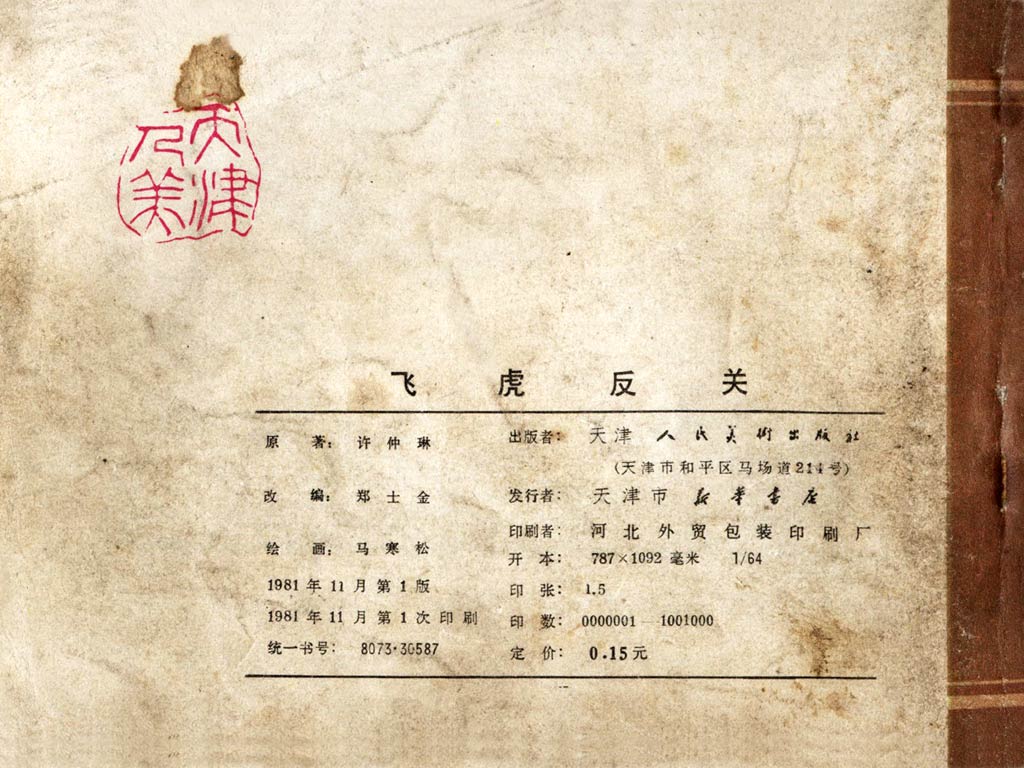 天津
人美
飞虎反关
原著：许仲琳
改编：郑士金
绘画：马寒松
1981年11月第1版
1981年11月第1次印刷
统一书号：8073·30587
出版者：天津人民美術出版社
（天津市和平区马场道214号）
发行者：天津市新华书店
印刷者：河北外贸包装印刷厂
开本：787×1092毫米 1/64
印张：1.5
印数：0000001—1001000
定价：0.15元